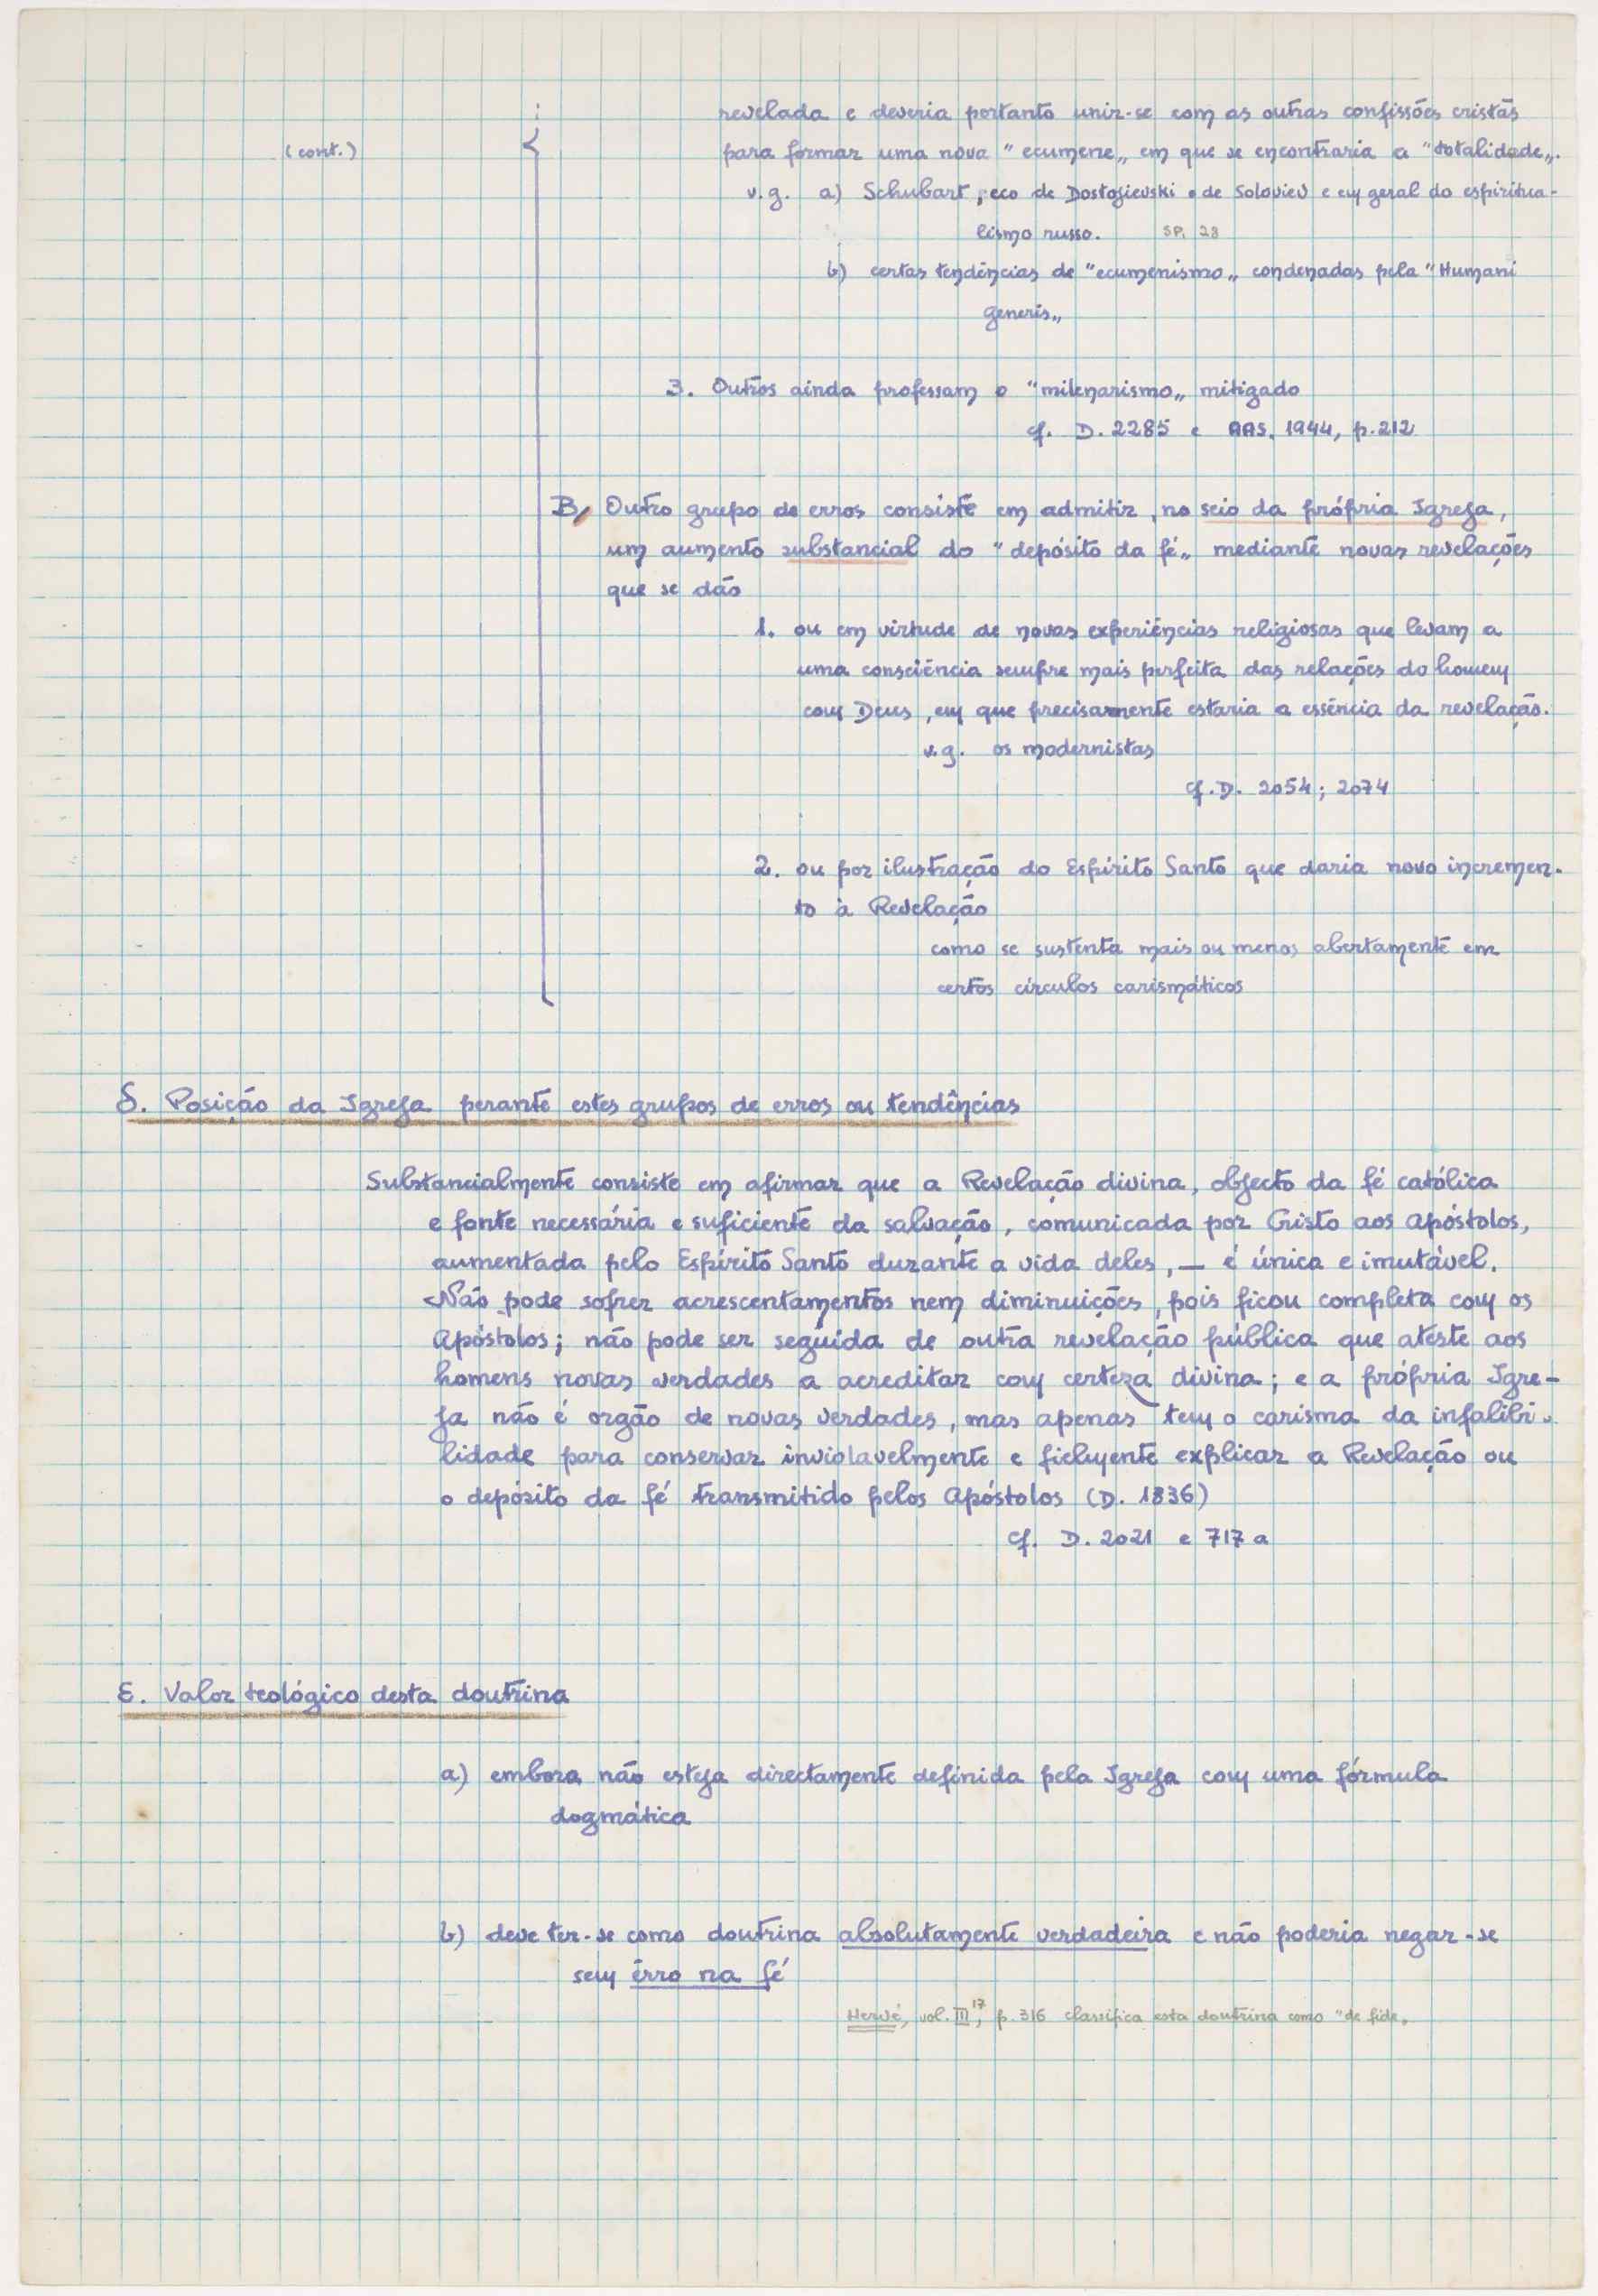 revelada e deveria portanto unir-se com as outras confissões cristãs
(cont.)
para formar uma nova "ecumene„ em que se encontraria a "totalidade„.
v.g. a) Schubart, eco de Dostojievski e de Soloviev e em geral do espiritua-
lismo russo. SP. 28
b) certas tendências de "ecumenismo„ condenadas pela "Humani
generis„
3. Outros ainda professam o "milenarismo„ mitigado
cf. D. 2285 e AAS. 1944, p. 212
B, Outro grupo de erros consiste em admitir, no seio da própria Igreja,
um aumento substancial do "depósito da fé„ mediante novas revelações
que se dão
1. ou em virtude de novas experiências religiosas que levam a
uma consciência sempre mais perfeita das relações do homem
com Deus, em que precisamente estaria a essência da revelação.
v.g. os modernistas
cf. D. 2054; 2074
2. ou por ilustração do Espírito Santo que daria novo incremen-
to à Revelação
como se sustenta mais ou menos abertamente em
certos círculos carismáticos
δ. Posição da Igreja perante estes grupos de erros ou tendências
Substancialmente consiste em afirmar que a Revelação divina, objecto da fé católica
e fonte necessária e suficiente da salvação, comunicada por Cristo aos Apóstolos,
aumentada pelo Espírito Santo durante a vida deles, — é única e imutável.
Não pode sofrer acrescentamentos nem diminuições, pois ficou completa com os
Apóstolos; não pode ser seguida de outra revelação pública que ateste aos
homens novas verdades a acreditar com certeza divina; e a própria Igre-
ja não é orgão de novas verdades, mas apenas tem o carisma da infalibi-
lidade para conservar inviolavelmente e fielmente explicar a Revelação ou
o depósito da fé transmitido pelos Apóstolos (D. 1836)
cf. D. 2021 e 717 a
ε. Valor teológico desta doutrina
a) embora não esteja directamente definida pela Igreja com uma fórmula
dogmática
b) deve ter-se como doutrina absolutamente verdadeira e não poderia negar-se
sem êrro na fé
Hervé, vol. III¹⁷, p. 316 classifica esta doutrina como "de fide„